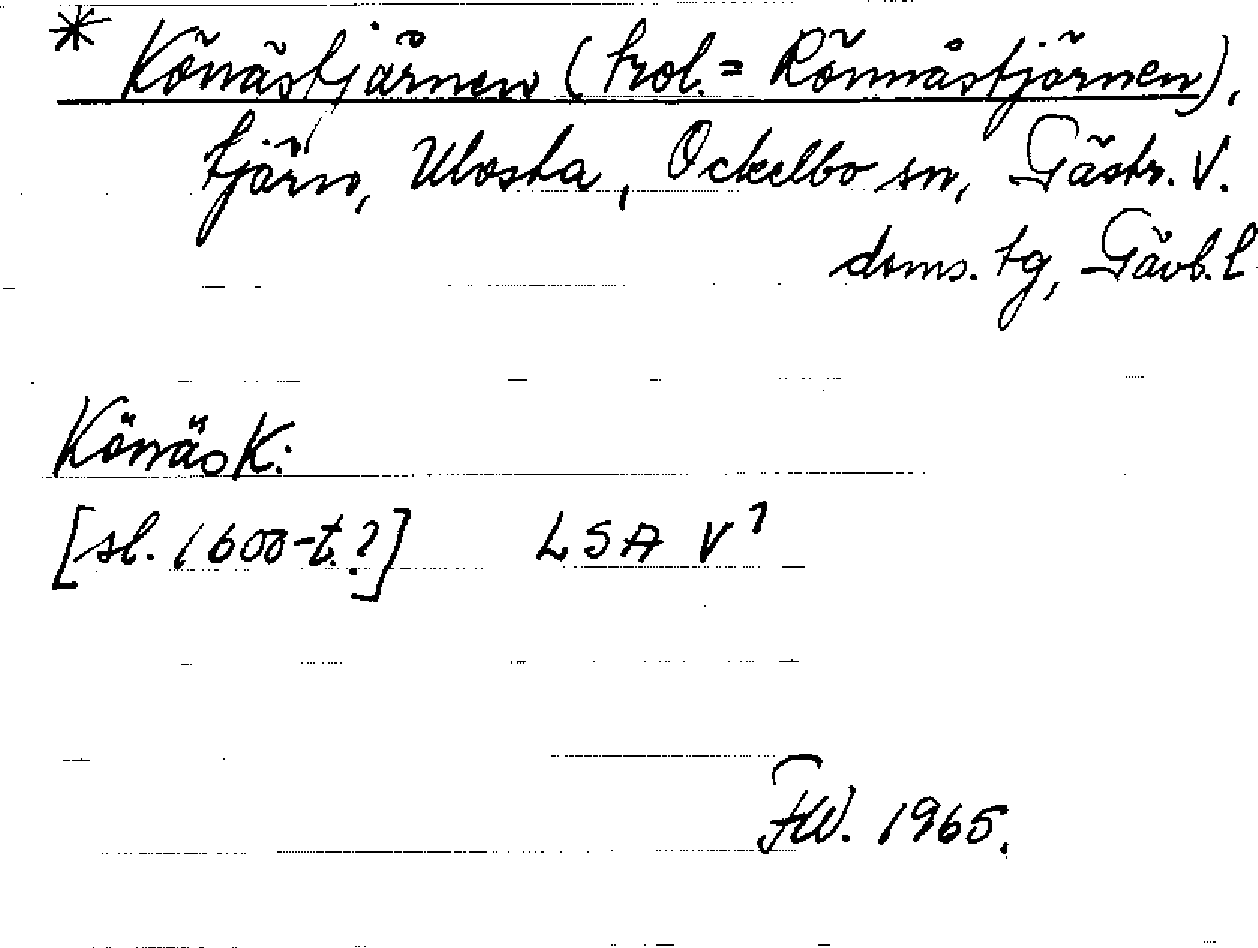 * Könästjärnen (trol. = Rönnåstjärnen),
tjärn, Ulvsta, Ockelbo sn, Gästr. V.
doms. tg, Gävb. l
Könäs K:
[sl. 1600-t.?] LSA V 7
FW. 1965.